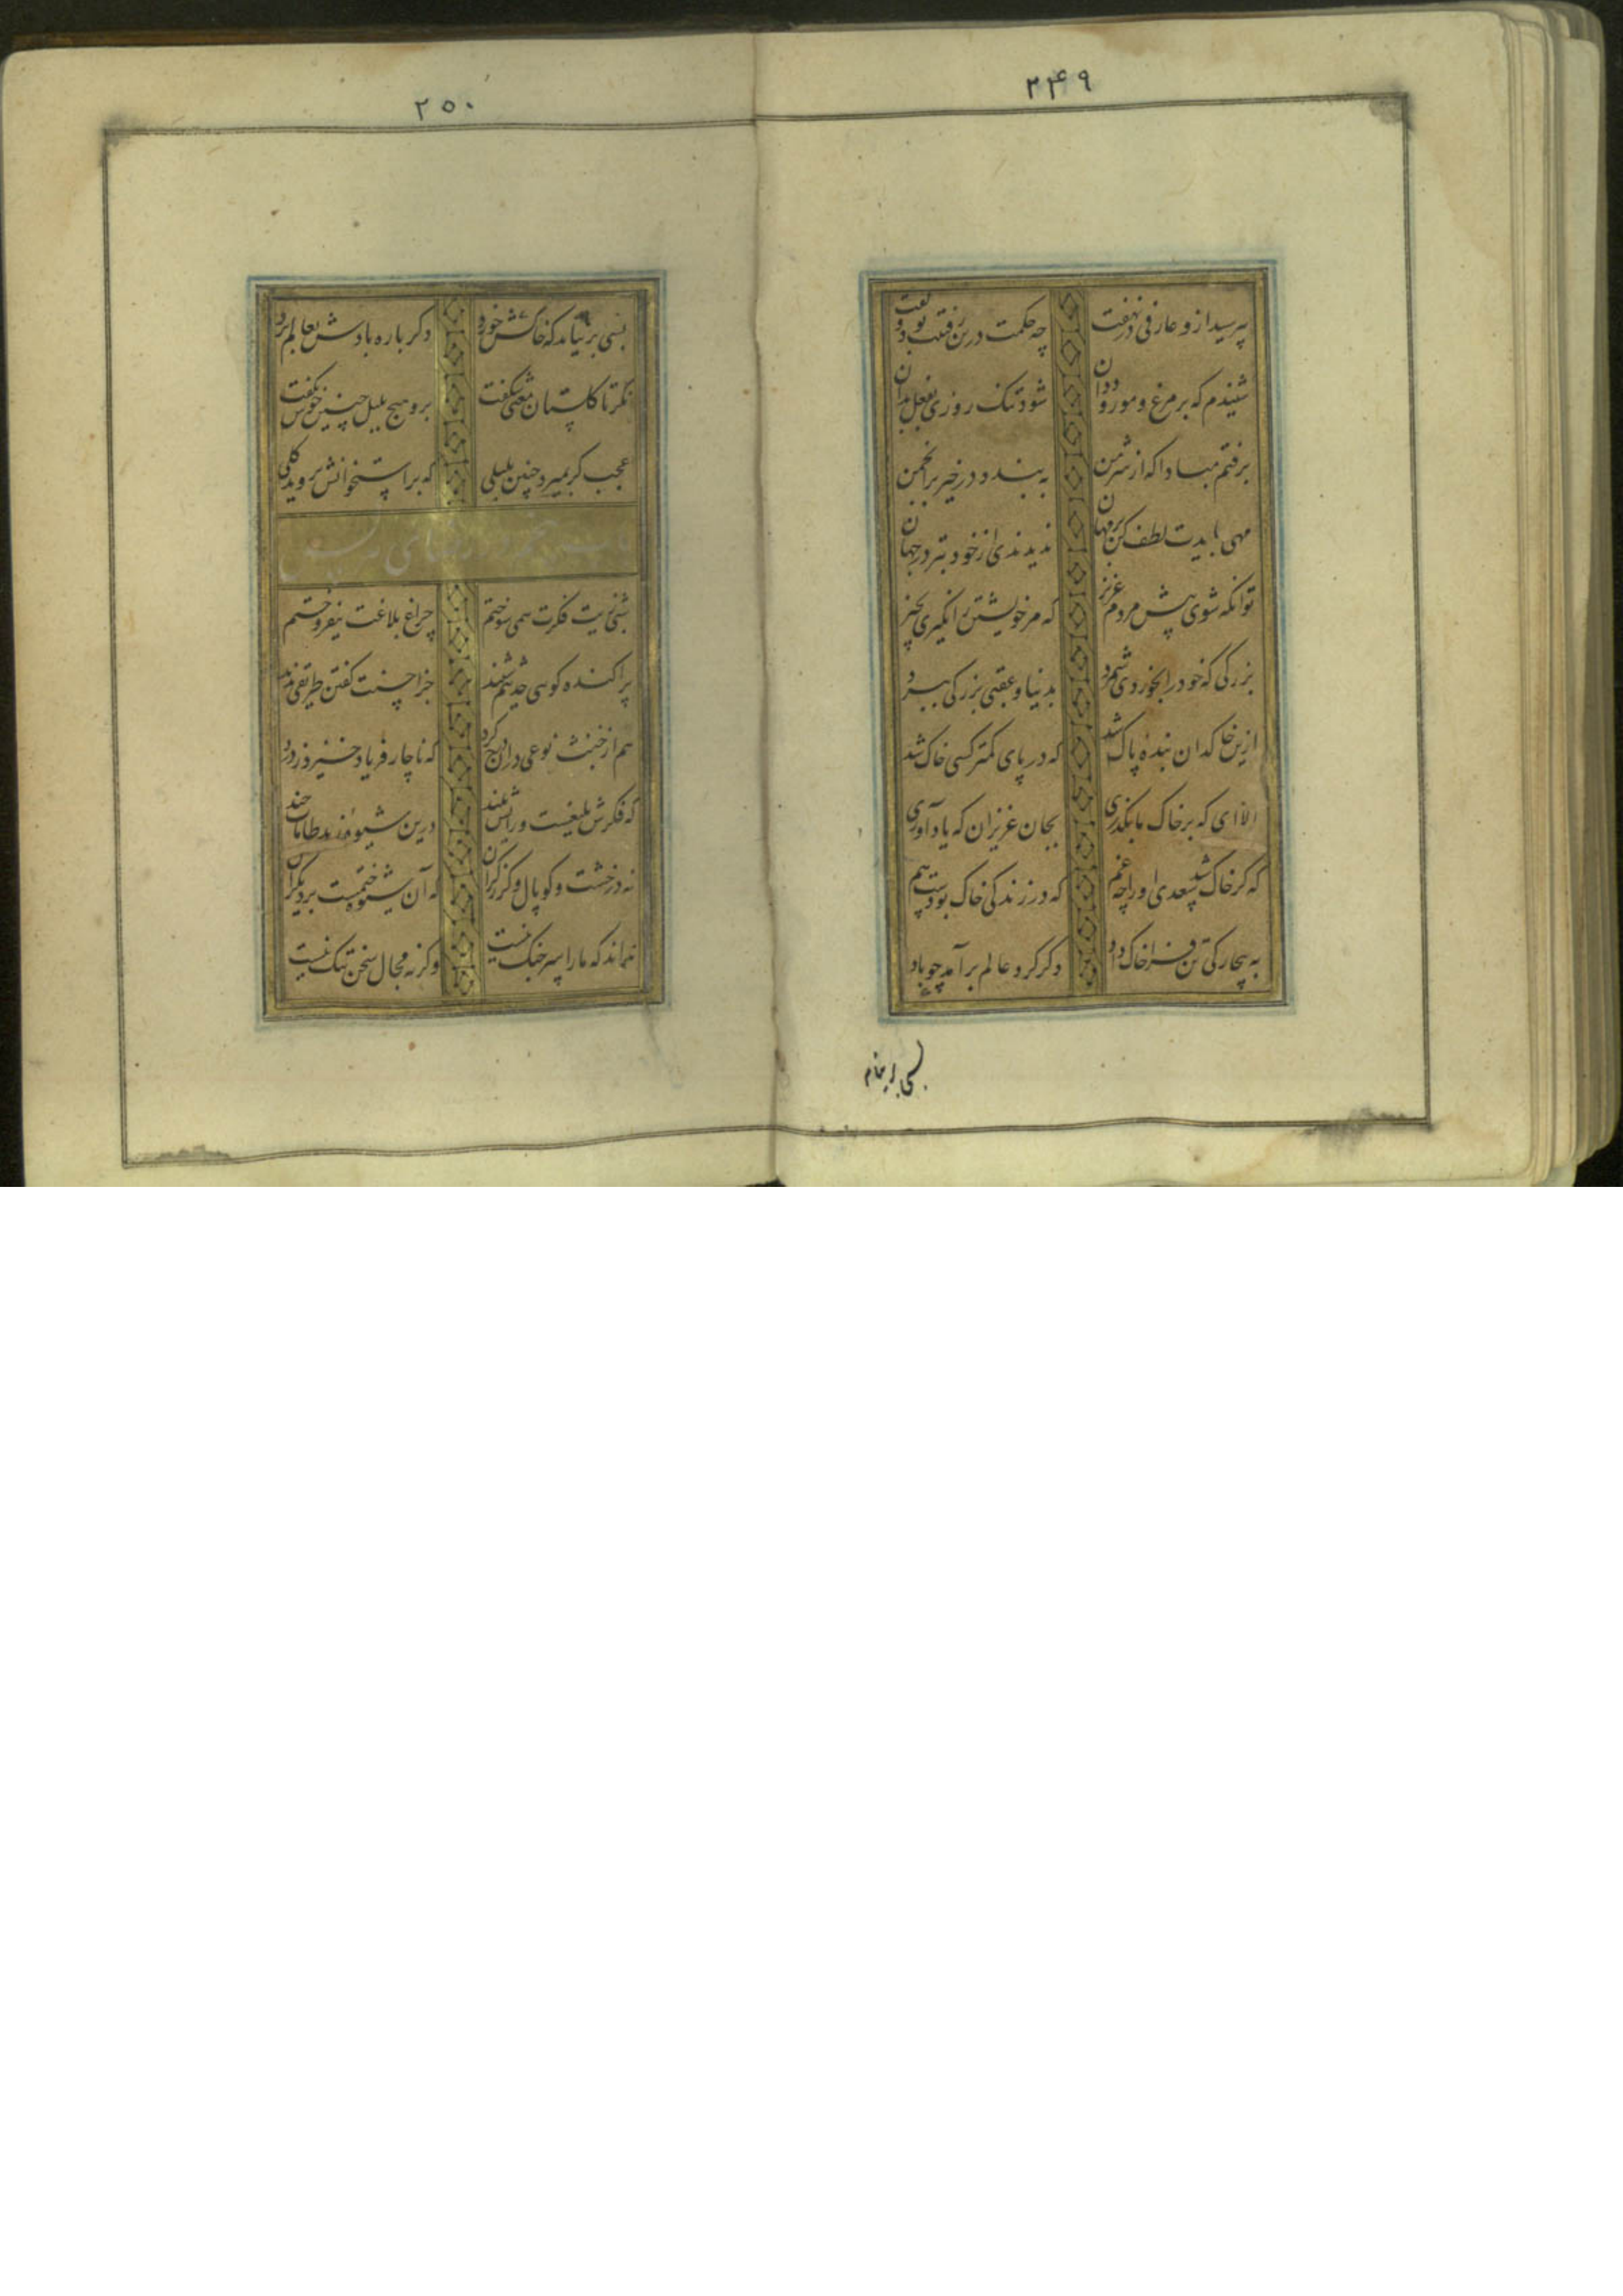 ۲۴۹
بپرسید ازو عارفی در نهفت چه حکمت درین رفتنت بود گفت
شنیدم که بر مرغ و مور و ددان شود تنک روزی بفعل بدان
برفتم مبادا که از شر من به بندد در خیر بر انجمن
مهی بایدت لطف کن بر مهان ندیدندی از خود بتر در جهان
تو انکه شوی پیش مردم عزیز که مر خویشتن را نگیری بچیز
بزرکی که خود را بخوردی شمرد بدنیا و عقبی بزرکی ببرد
ازین خاکدان بنده پاک شد که در پای کمتر کسی خاک شد
الا ای که بر خاک ما بگذری بجان عزیزان که یاد آوری
که کر خاک شد سعدی او را چه غم که در زندکی خاک بودست هم
به بیچارکی تن فرا خاک داد دکر کرد عالم برآمد چو باد
۲۵۰
بسی برنیاید که خاکش خورد دکر باره بادش بعالم برد
نکر تا کلستان معنی شکفت برو هیچ بلبل چنین خوش نکفت
عجب کر بمیرد چنین بلبلی که بر استخوانش نروید کلی
شبی زیت فکرت همی سوختم چراغ بلاغت بیفروختم
پراکنده کوی حدیثم شنید جز احسنت کفتن طریقی ندید
هم از خبث نوعی دران درج کرد که ناچار فریاد خیزد ز درد
که فکرش بلیغست و رایش بلند درین شیوه زهد طامات چند
نه در خشت و کوپال و کرز کران که آن شیوه ختمست بر دیکران
نماند که ما را سر جنک نیست وکر نه مجال سخن تنک نیست